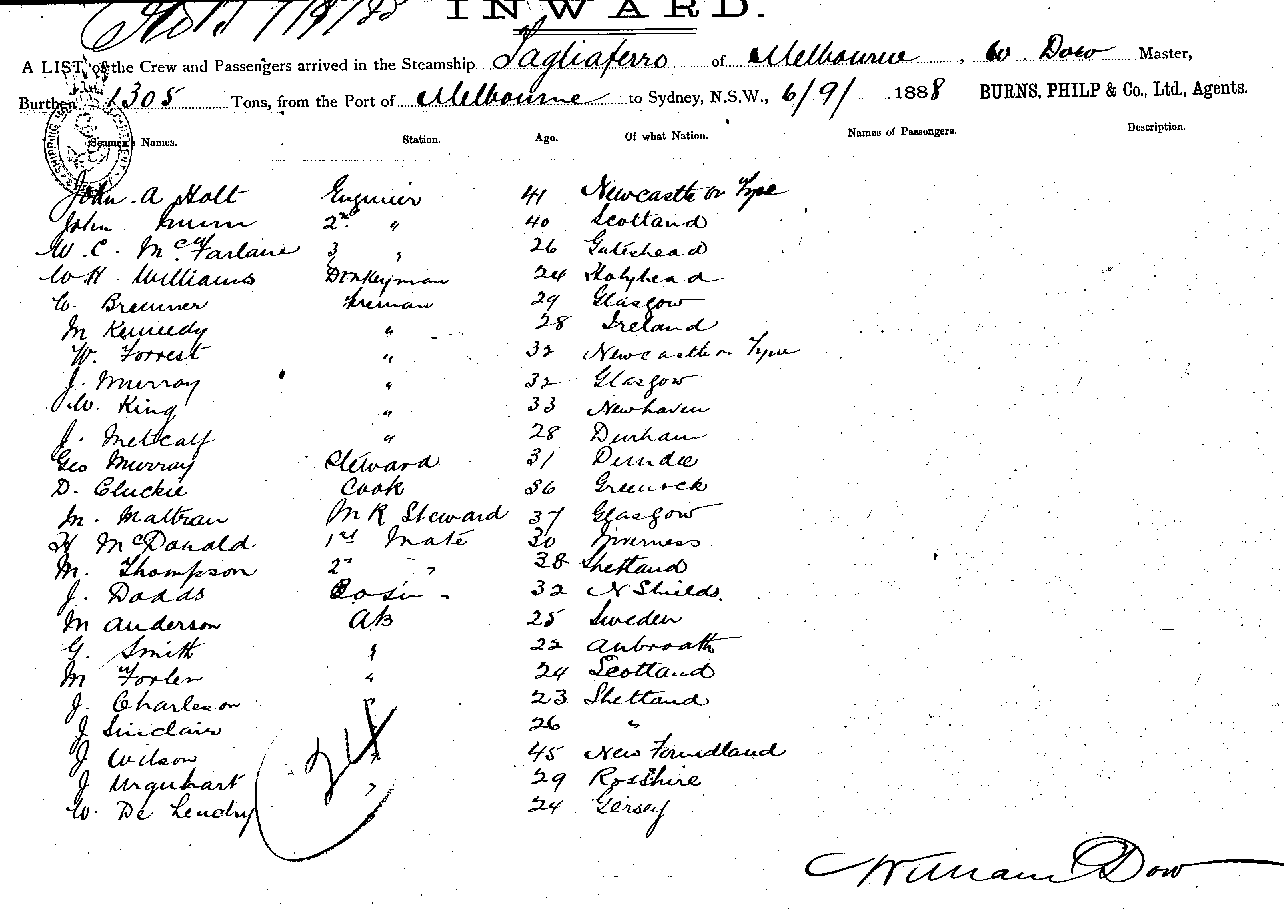 INWARD.
A LIST of the Crew and Passengers arrived in the Steamship Tagliaferro of Melbourne, W. Dow Master,
Burthen 1305 Tons, from the Port of Melbourne to Sydney, N.S.W., 6/9/ 1888 BURNS, PHILP & Co., Ltd., Agents.
Seamen's Names. Station. Age. Of what Nation. Names of Passengers. Description.
John A Holt Engineer 41 Newcastle on Tyne
John Munn 2nd " 40 Scotland
W. C. McFarlane 3 " 26 Gateshead
W H Williams Donkeyman 24 Holyhead
W. Bremner Fireman 29 Glasgow
M Kennedy " 28 Ireland
W. Forrest " 32 Newcastle on Tyne
J. Murray " 32 Glasgow
W. King " 33 Newhaven
J. Metcalf " 28 Durham
Geo Murray Steward 31 Dundee
D. Cluckie Cook 36 Greenock
M. Steward 37 Glasgow
H McDonald 1st Mate 30 Inverness
M. Thompson 2nd " 38 Shetland
J. Dodds Bosun 32 N Shields.
M Anderson AB 25 Sweden
G. Smith " 22 Aubroath
M " 24 Scotland
J. Charleson " 23 Shetland
J Sinclair " 26 "
J Wilson " 45 New Foundland
J Urquhart " 29 Rosshire
W. De 24 Jersey
24
William Dow